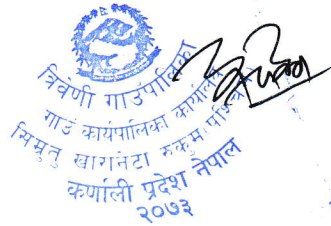 त्रिवेणी गाउँपालिका
गाउँ कार्यपालिका कार्यालय
सिम्रुतु खारानेटा रुकुम पश्चिम
कर्णाली प्रदेश नेपाल
२०७३